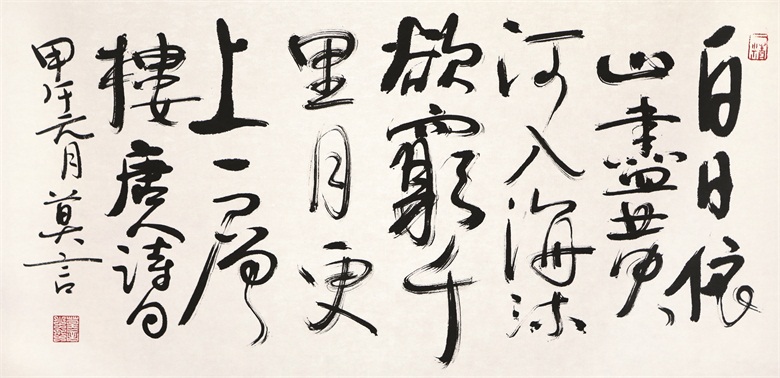 白日依
山盡黄
河入海流
欲窮千
里目更
上一層
樓 唐人詩句
甲午元月 莫言